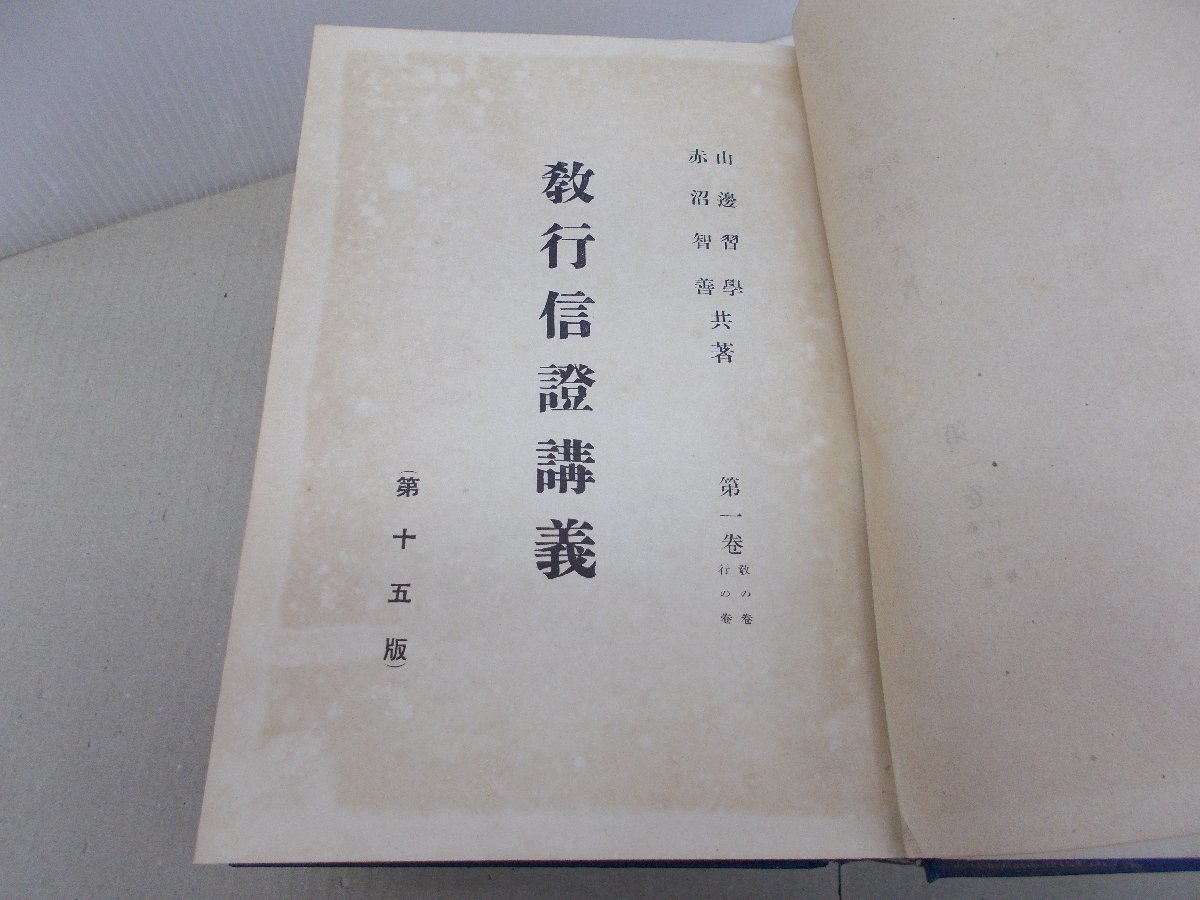 山邊習學
赤沼智善
共著
第一卷
教の卷
行の卷
教行信證講義
(第十五版)